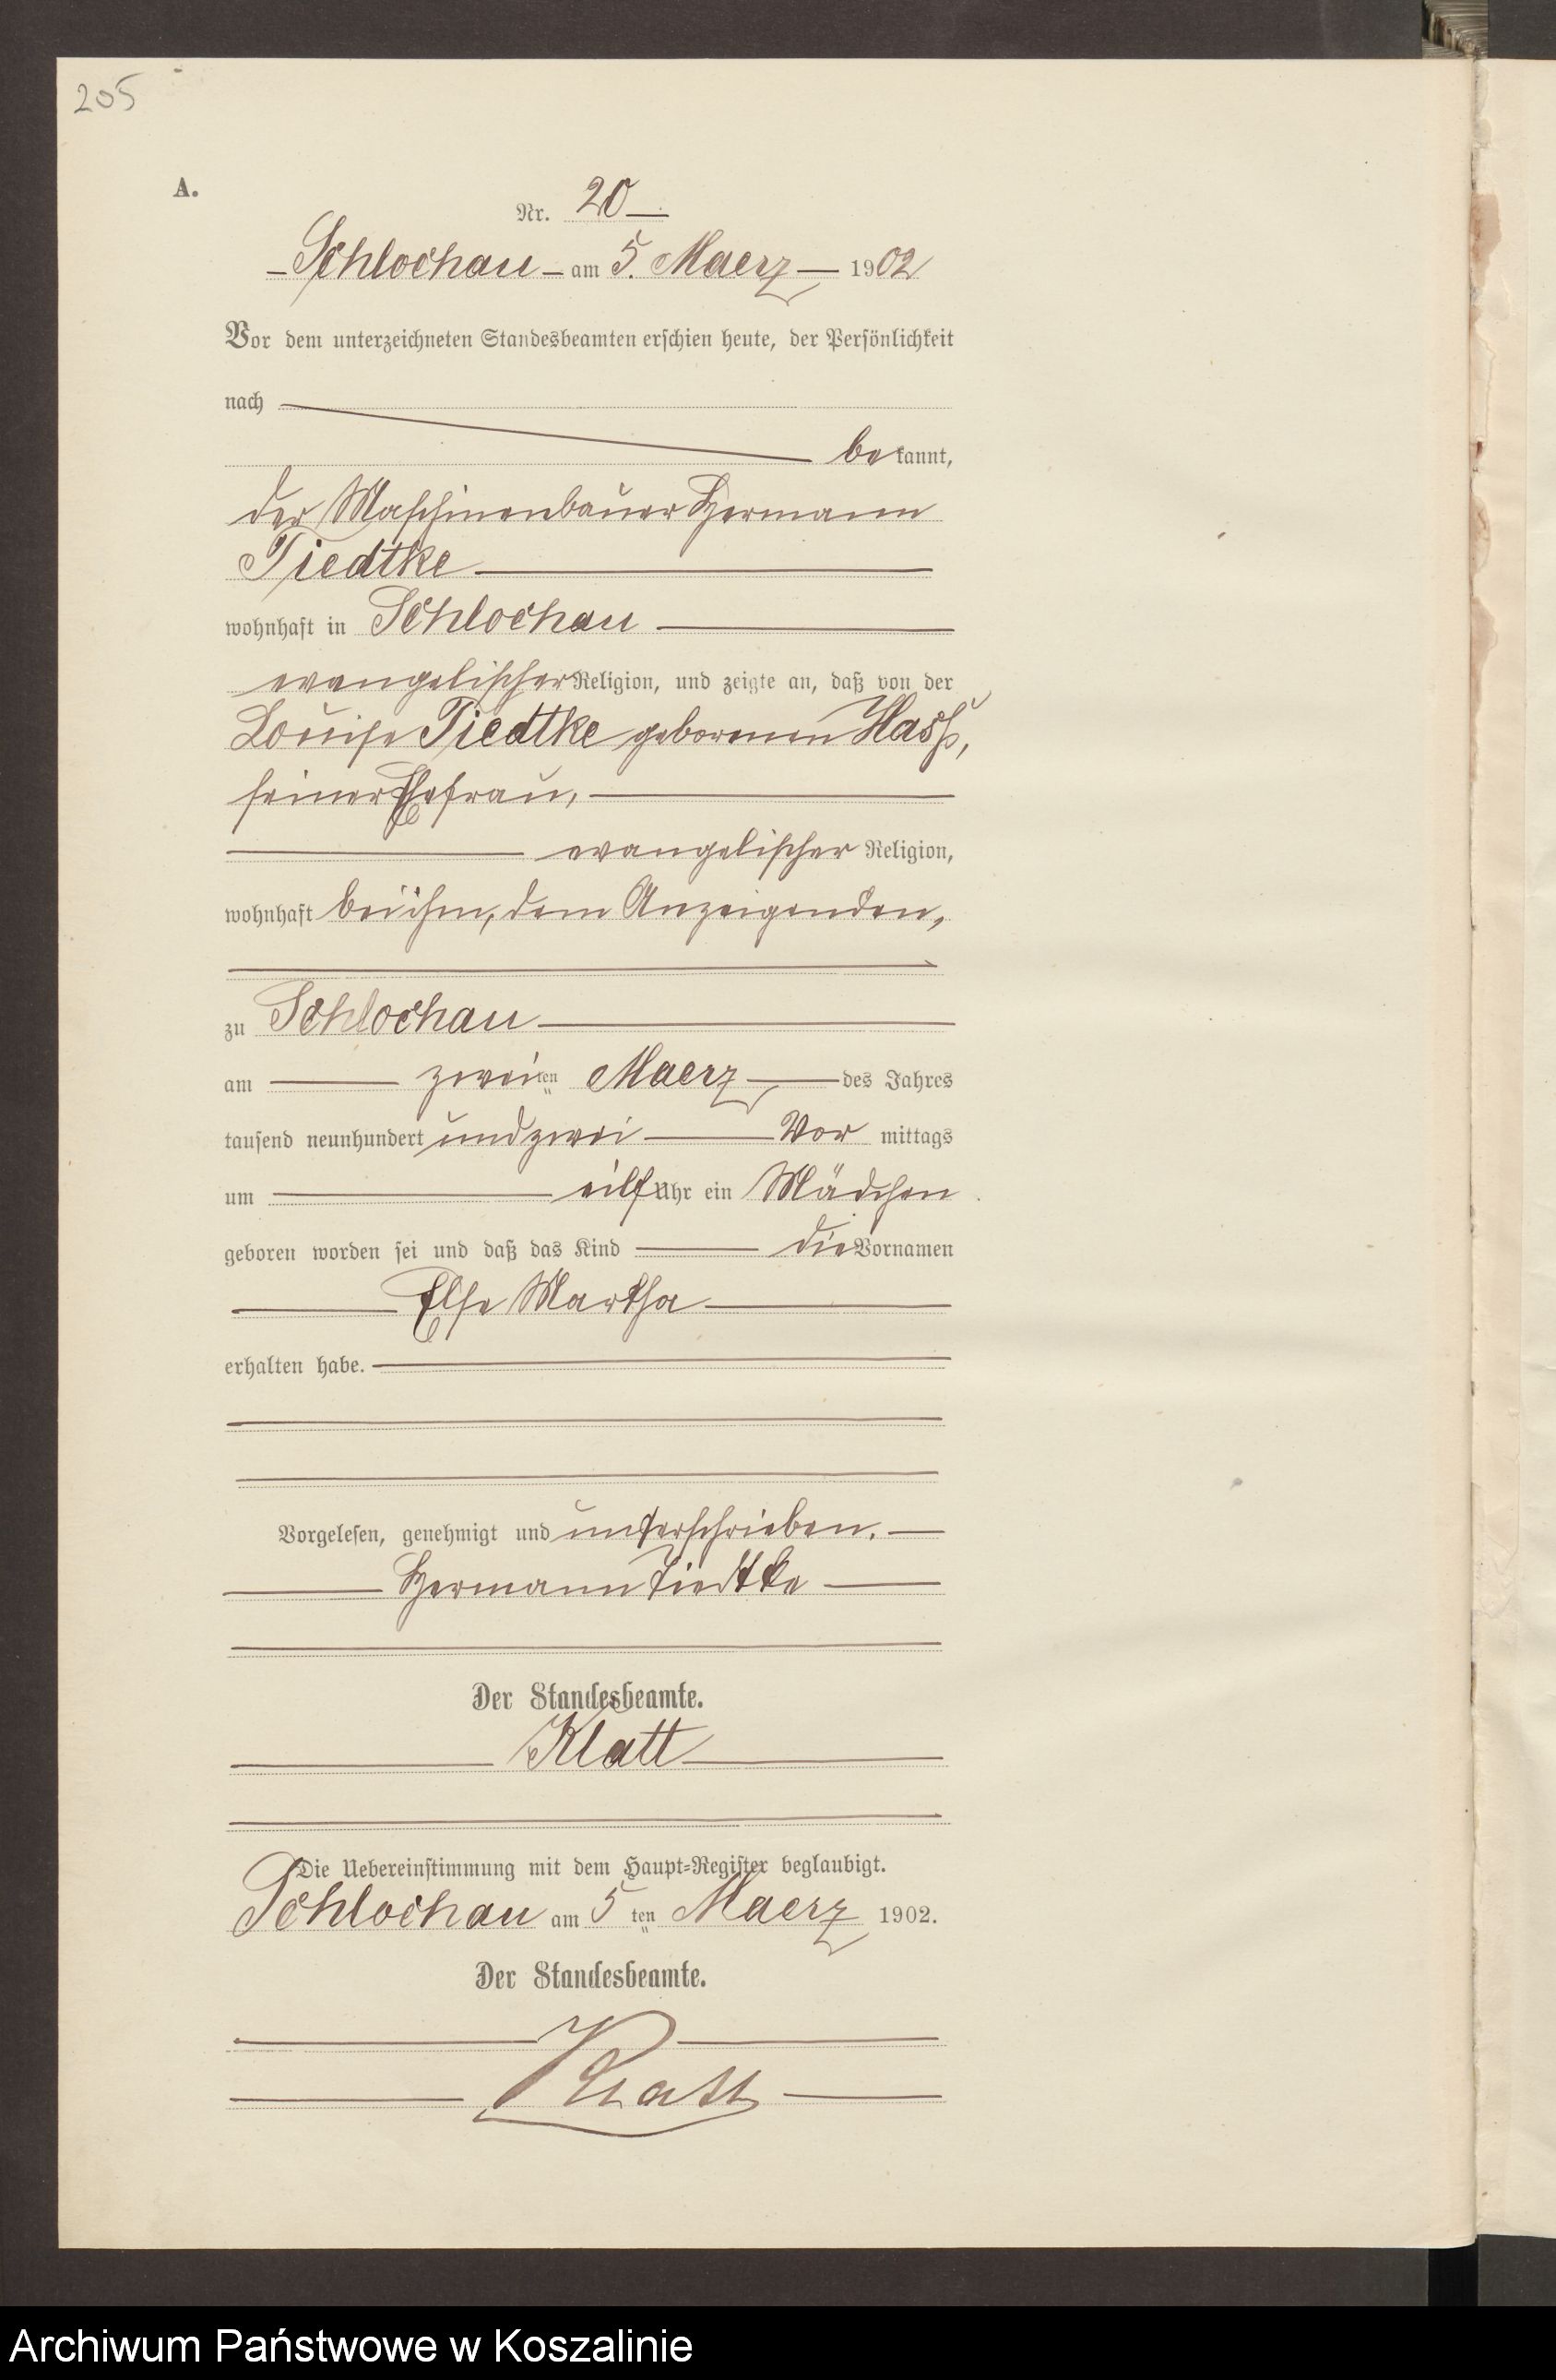 205
A.
Nr. 20
Schlochau am 5. Maerz 1902
Vor dem unterzeichneten Standesbeamten erschien heute, der Persönlichkeit
nach
bekannt,
der Maschinenbauer Hermann
Tiedtke
wohnhaft in Schlochau
evangelischer Religion, und zeigte an, daß von der
Louise Tiedtke geborenen Hass,
seiner Ehefrau,
evangelischer Religion,
wohnhaft bei ihm, dem Anzeigenden,
zu Schlochau
am zweiten Maerz des Jahres
tausend neunhundert und zwei Vor mittags
um eilf Uhr ein Mädchen
geboren worden sei und daß das Kind die Vornamen
Else Martha
erhalten habe.
Vorgelesen, genehmigt und unterschrieben.
Hermann Tiedtke
Der Standesbeamte.
Klatt
Die Uebereinstimmung mit dem Haupt-Register beglaubigt.
Schlochau am 5 ten Maerz 1902.
Der Standesbeamte.
Klatt
Archiwum Państwowe w Koszalinie